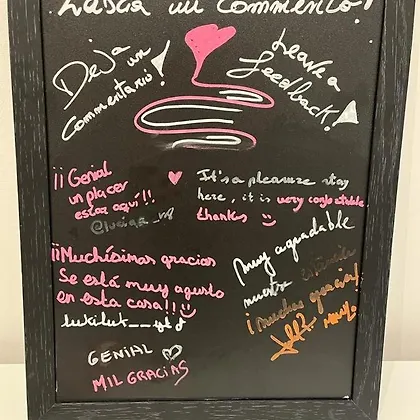 Lascia un commento!
Deja un
commentario!
Leave a
feedback!
¡¡Genial
un placer
estar aquí!!
It's a pleasure stay
here, it is very confortable
thanks
Muy agradable
nuestra estancia
¡muchas gracias!
¡¡Muchísimas gracias
Se está muy agusto
en esta casa!!
GENIAL
MIL GRACIAS